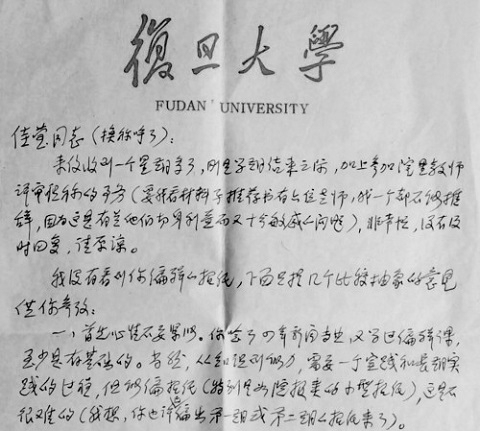 復旦大學
FUDAN UNIVERSITY
佳莹同志(换称呼了):
来仪收到一个星期多了,刚是学期结束之际,加上参加院里教师
评审的事务(要我看材料予推荐的有占位老师,我一个都不能推
辞,因为这是有关他们切身利益而又十分敏感的问题),非常忙,没有及
时回复,请原谅。
我没有看到你编辑的报纸,下面只提几个比较抽象的意见
供你参考:
一、首先心里不要紧张。你学了四年新闻专业,又学过编辑课,
至少是有基础的。当然,从知识到能力,需要一个实践和长期实
践的过程,但编报纸(特别是办院报来的小型报纸),这是不
很难的(我想,你也许编出第一期或第二期的报纸来了)。